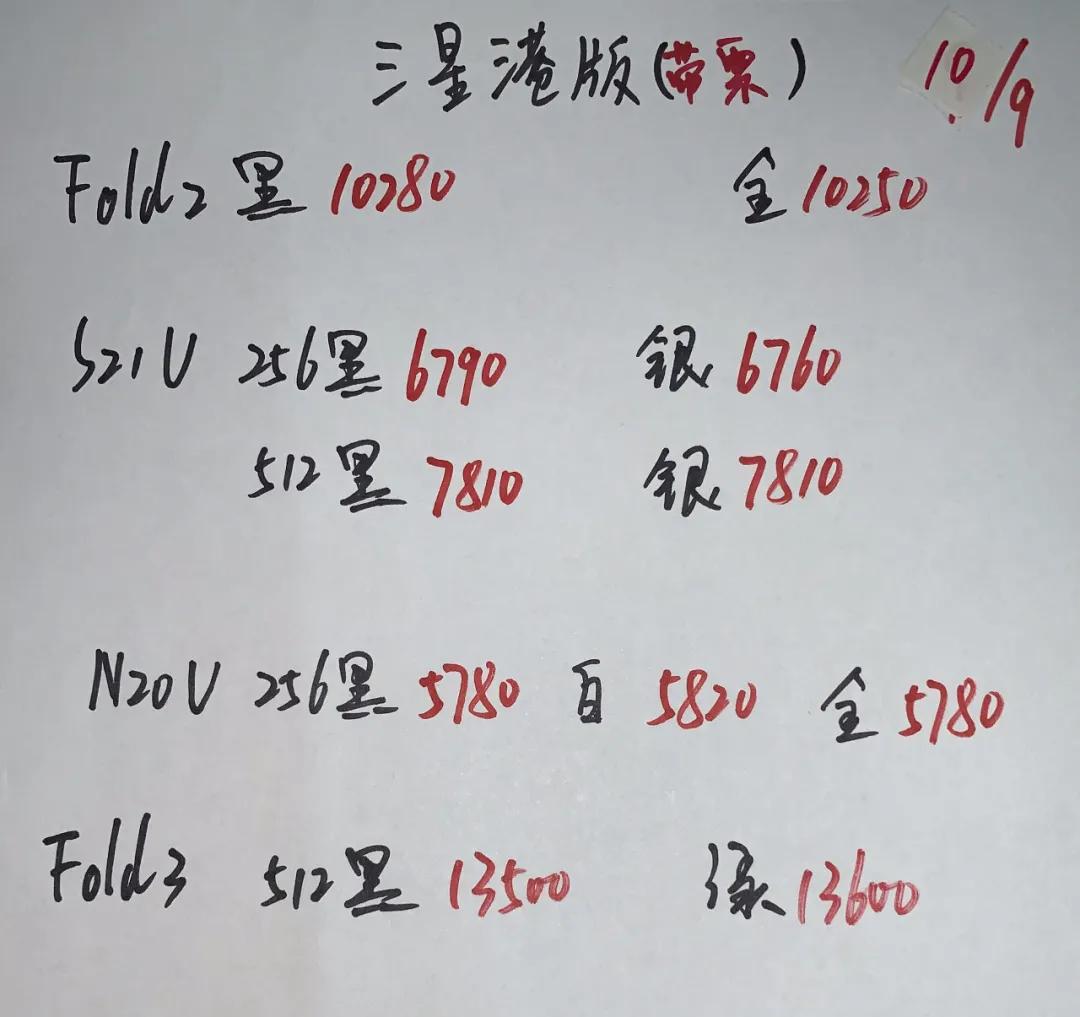 三星港版(带票) 10/9
Fold2 黑 10280 金 10250
S21U 256黑 6790 银 6760
512黑 7810 银 7810
N20U 256黑 5780 白 5820 金 5780
Fold3 512黑 13500 绿 13600